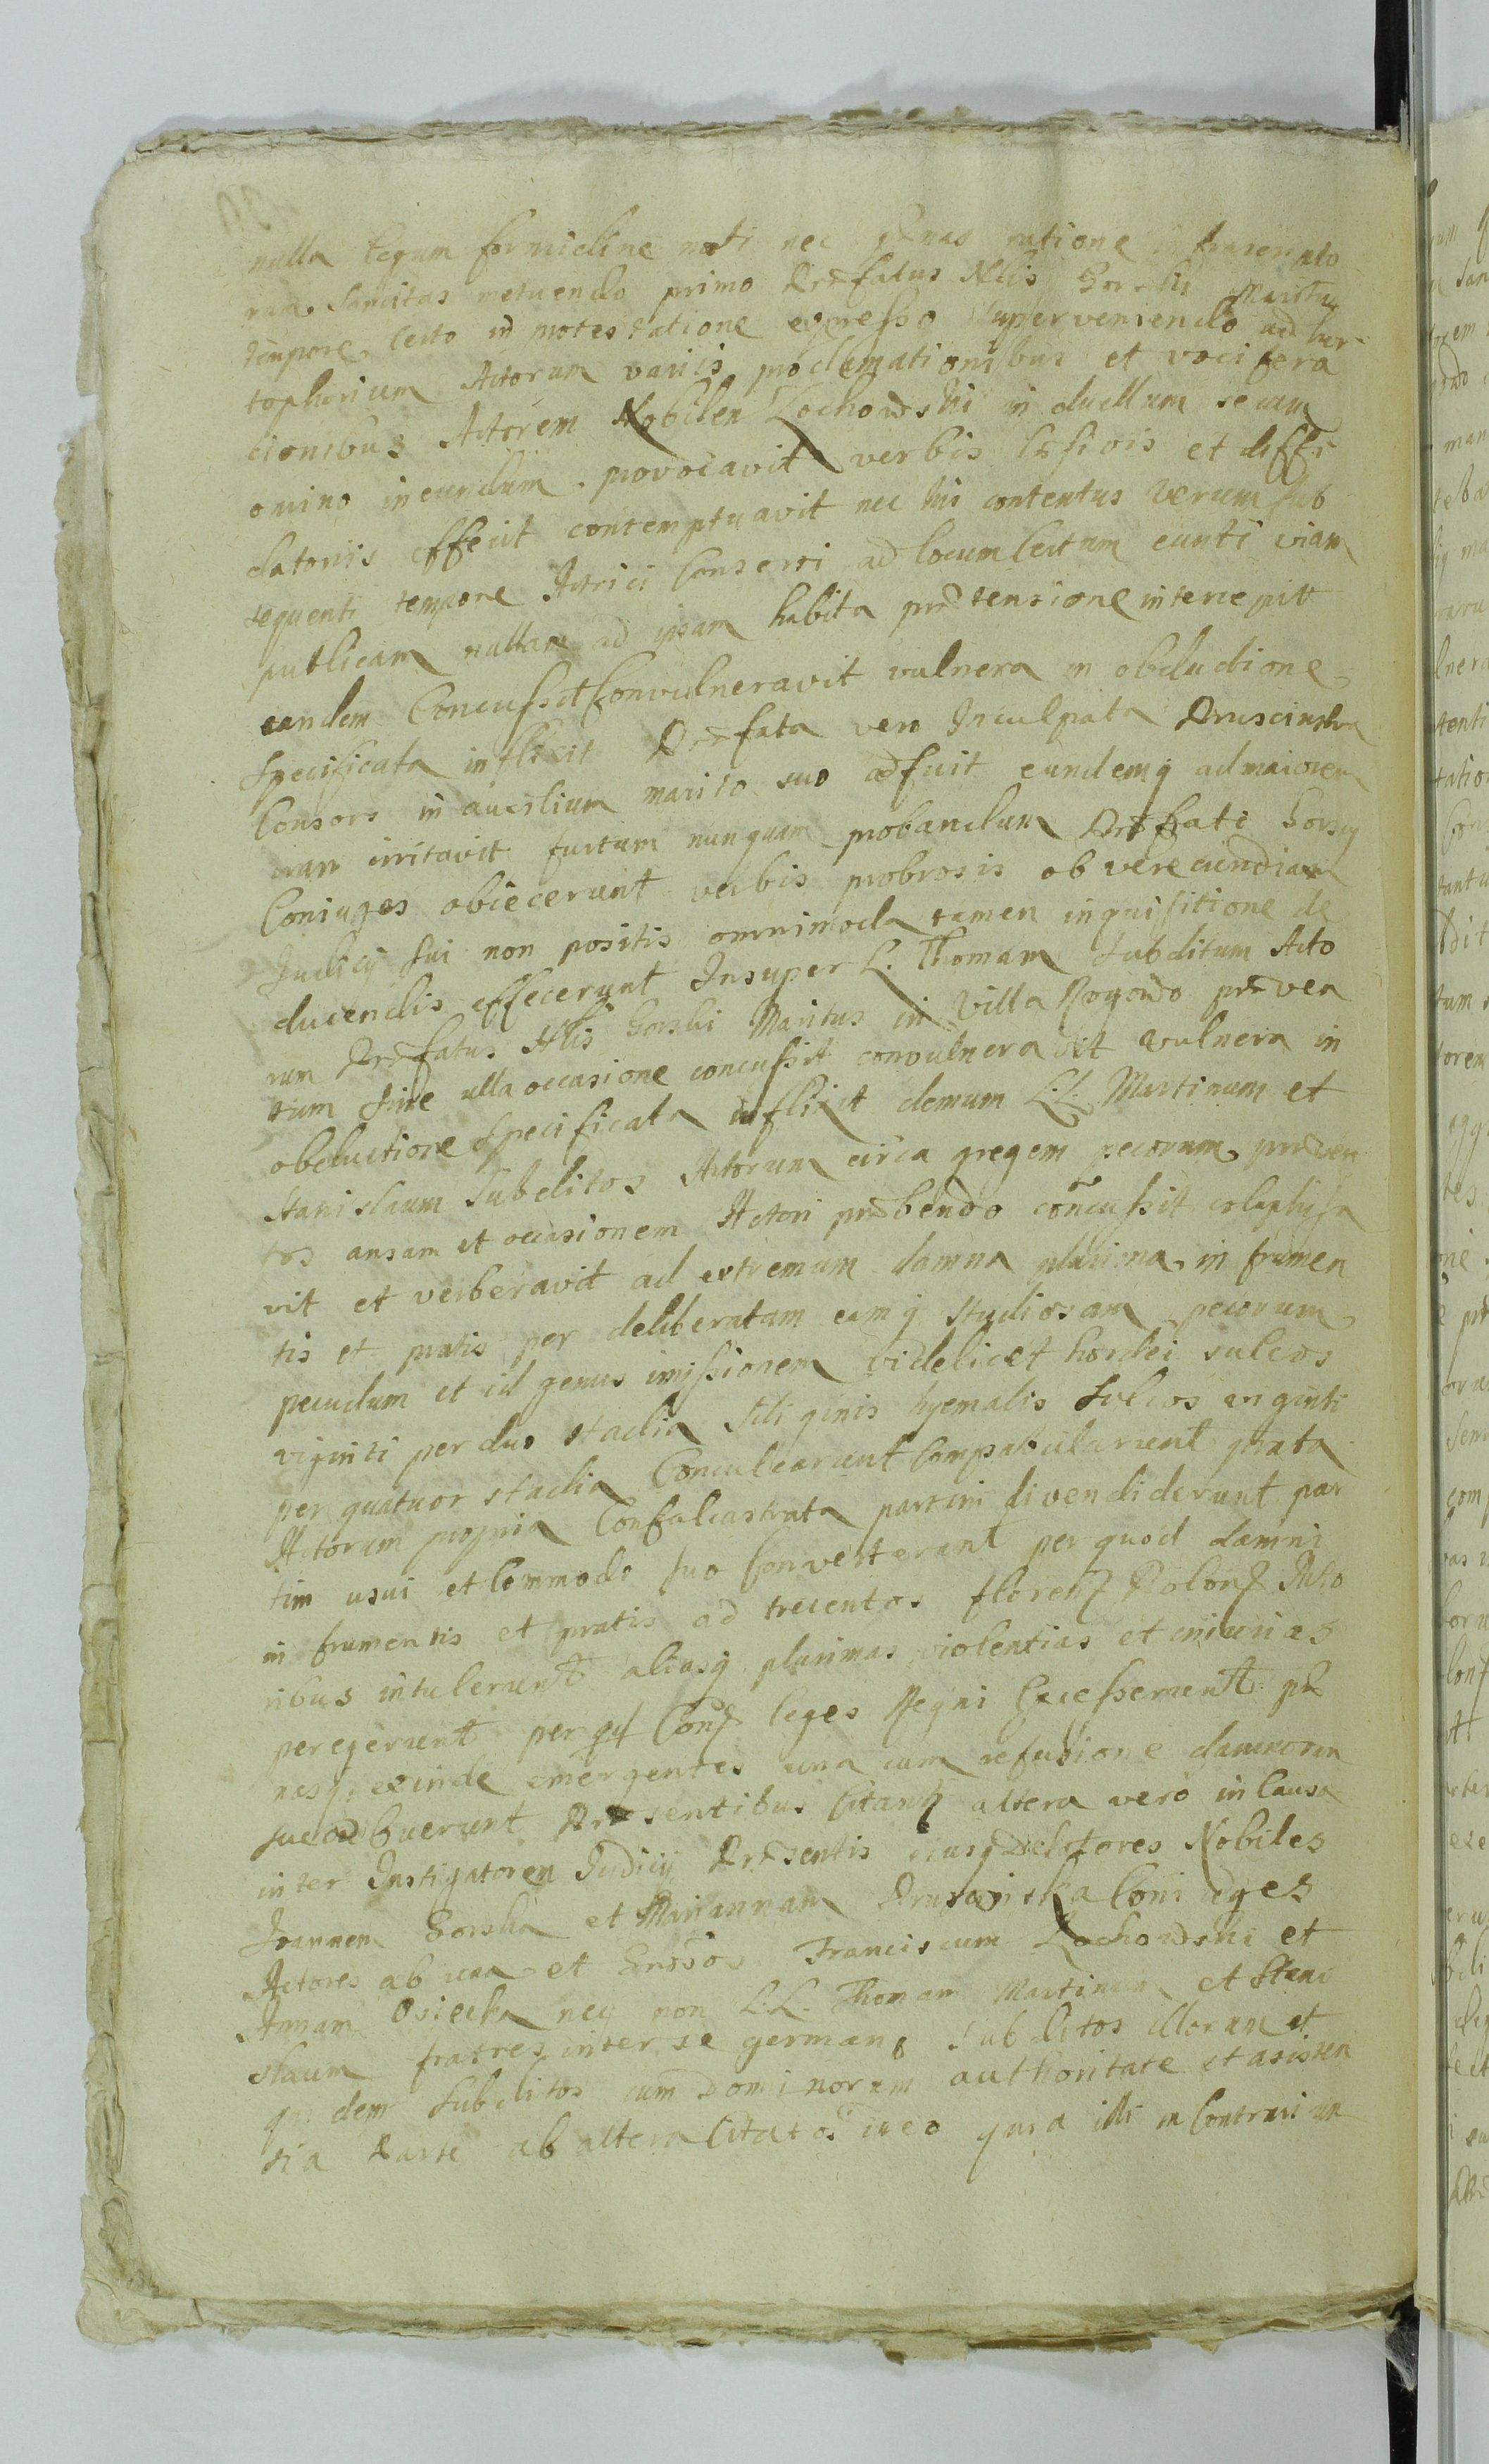 nulla legum formidine moti nec pænas ratione infrascripto
rum sancitas metuendo primo Præfatus Nlis Gorski Maritus
tempore certo in protestatione expresso superveniendo ad cur
tophorium Actorum variis proclamationibus et vocifera
tionibus Actorem Nobilem Lochowski in duellum secum
omino ineundum provocavit verbis læsivis et diffi
datoriis effecit contemptuavit nec his contentus verum sub
sequenti tempore Actrici Consorti ad locum certum eunti viam
publicam nullam ad ipsam habita prætensione intercepit
eandem Concussit Convulneravit vulnera in obductione
specificata inflixit Præfata vero Inculpata Druscinska
Consors in auxilium marito suo adfuit eundemq ad maiorem
iram irritavit furtum nunquam probandum Præfati Gorscy
Coniuges obiecerunt verbis probrosis ob verecundiam
Iudicij sui non positis omnimoda tamen inquisitione de
ducendis effecerunt Insuper L. Thomam subditum Acto
rum Præfatus Nlis Gorski Maritus in Villa Rogowo præven
tum sine ulla occasione concussit convulneravit vulnera in
obductione specificata inflixit demum L.L. Martinum et
Stanislaum subditos Actorum circa gregem pecorum præven
tos ansam et occasionem Actori præbendo concussit colaphisa
vit et verberavit ad extremum damna plurima in frumen
tis et pratis per deliberatam eamq studiosam pecorum
pecudum et id genus imissionem videlicet hordei sulcos
viginti per duo stadia siliginis hyemalis sulcos viginti
per quatuor stadia Conculcarunt Compabularunt prata
Actorum propria Confalcastrata partim divendiderunt par
tim usui et Commodo suo Converterunt per quod damni
in frumentis et pratis ad trecentos floren Polon Acto
ribus intulerunt aliasq plurimas violentias et iniurias
peregerunt per q Con leges Regni Excesserunt pæ
nasq exinde emergentes una cum refusione damnorum
succubuerunt Præsentibus Citan altera vero in Causa
inter Instigatorem Iudicij Præsentis eiusq Delatores Nobiles
Ioannem Gorski et Mariannam Drusinska Coniuges
Actores ab una et Gnrosos Franciscum Lochowski et
Annam Osiecka nec non L.L. Thomam Martinum et Stani
slaum fratres inter se germanos subditos illorum et
quidem subditos cum Dominorum authoritate et asisten
tia Parte ab altera Citatos ideo quia illi in Contrarium